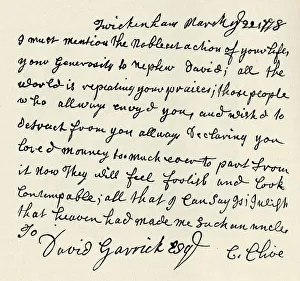 Twickenham March ye 22 1778
I must mention the Noblest action of your life,
your Generosity to nephew David; all the
world is repeating your praises; those people
who allways envyd you, and wishd to
detract from you allways Declaring you
loved mouney to much ever to part from
it now They will feel foolish and look
Contempable; all that I Can Say Is; I wish
that heaven had made me Such an uncle
To
David Garrick Esqr C. Clive